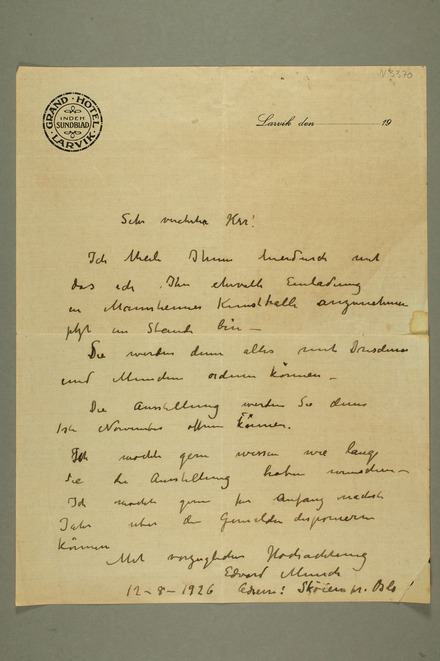 No 3370
GRAND · HOTEL
INDEH.
SUNDBLAD
LARVIK
Larvik den 19
Sehr verehrter Herr!
Ich theile Ihnen hierdurch mit
das ich Ihre ehrvolle Einladung
in Mannheimer Kunsthalle anzunehmen
jetzt im Stande bin –
Sie werden denn alles mit Dresden
und München ordnen können –
Die Ausstellung werden Sie denn
1ste November öffnen können.
Ich möchte gern wissen wie lange
Sie die Ausstellung haben wünschen –
Ich möchte gern für Anfang nächste
Jahr über die Gemälde disponieren
können
Mit vorzüglicher Hochachtung
Edvard Munch
12-8-1926 Adresse: Sköien pr. Oslo